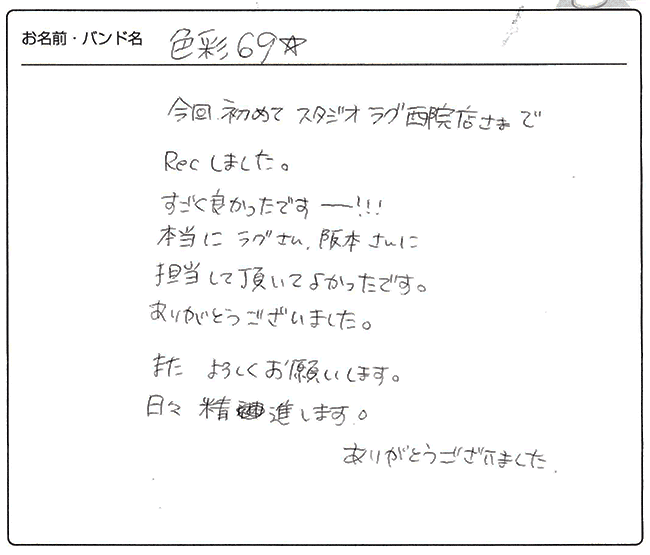 お名前・バンド名 色彩69☆
今回 初めて スタジオ ラグ西院店さまで
Rec しました。
すごく良かったですー!!!
本当に ラグさん、阪本さんに
担当して頂いてよかったです。
ありがとうございました。
また よろしくお願いします。
日々 精進します。
ありがとうございました.